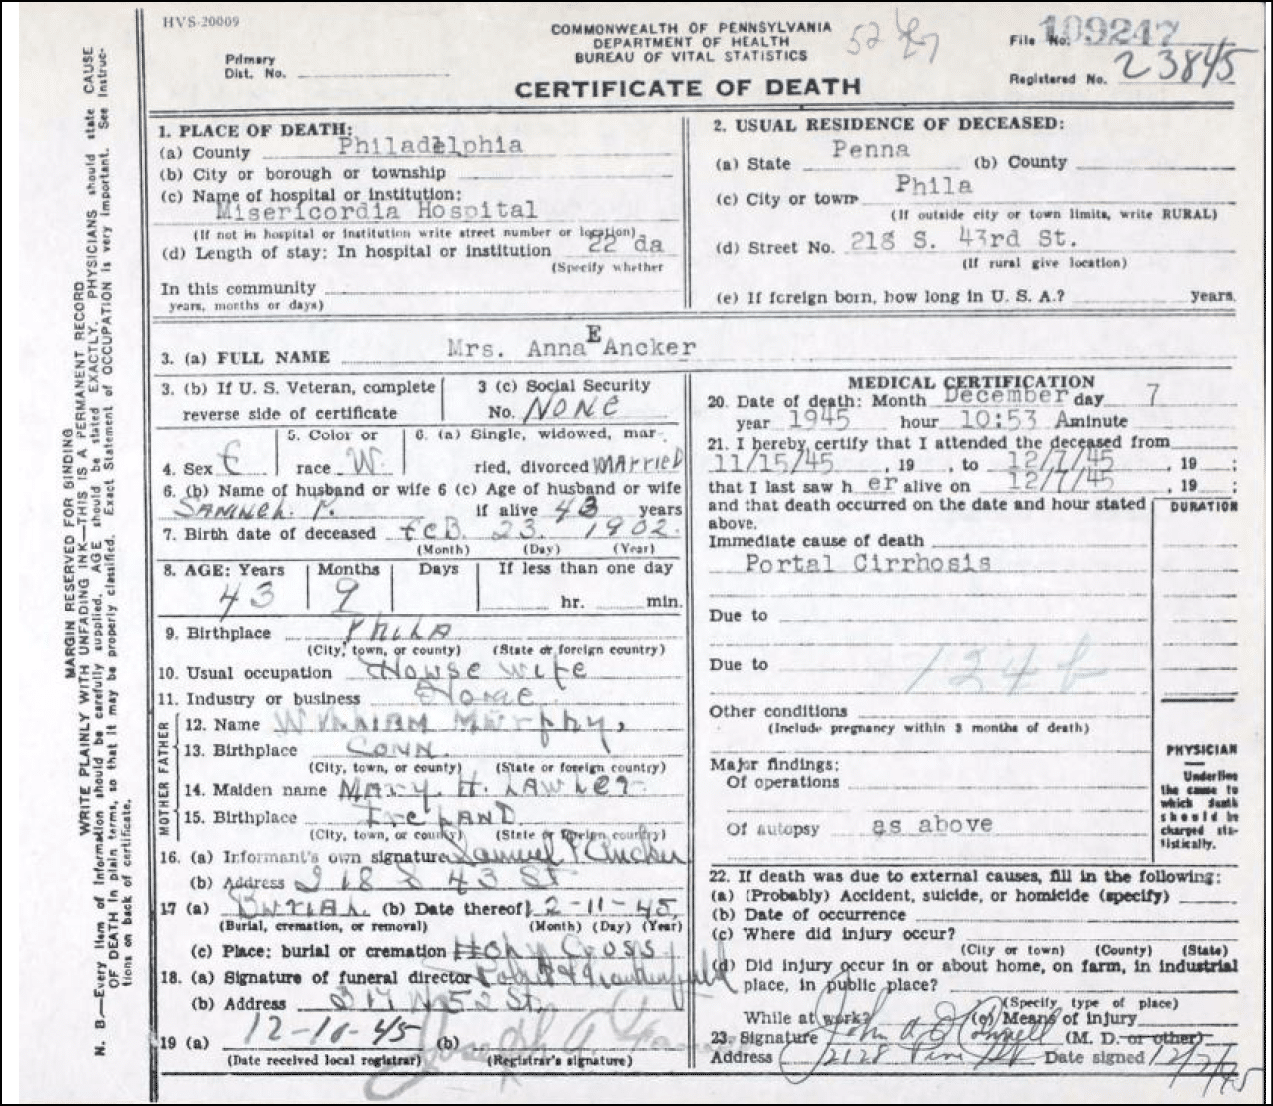 HVS-20009
COMMONWEALTH OF PENNSYLVANIA
DEPARTMENT OF HEALTH
BUREAU OF VITAL STATISTICS
CERTIFICATE OF DEATH
Primary
Dist. No.
52
File No. 109247
Registered No. 23845
MARGIN RESERVED FOR BINDING
WRITE PLAINLY WITH UNFADING INK—THIS IS A PERMANENT RECORD
N. B.—Every item of information should be carefully supplied. AGE should be stated EXACTLY. PHYSICIANS should state CAUSE
OF DEATH in plain terms, so that it may be properly classified. Exact Statement of OCCUPATION is very important. See Instruc-
tions on back of certificate.
1. PLACE OF DEATH:
(a) County Philadelphia
(b) City or borough or township
(c) Name of hospital or institution:
Misericordia Hospital
(If not in hospital or institution write street number or location)
(d) Length of stay: In hospital or institution 22 da
(Specify whether
In this community
years, months or days)
2. USUAL RESIDENCE OF DECEASED:
(a) State Penna (b) County
(c) City or town Phila
(If outside city or town limits, write RURAL)
(d) Street No. 218 S. 43rd St.
(If rural give location)
(e) If foreign born, how long in U. S. A.? years.
3. (a) FULL NAME Mrs. Anna E Ancker
3. (b) If U. S. Veteran, complete
reverse side of certificate
3 (c) Social Security
No. NONE
4. Sex F
5. Color or
race W.
6. (a) Single, widowed, mar-
ried, divorced MARRIED
6. (b) Name of husband or wife
SAMUEL P.
6 (c) Age of husband or wife
if alive 43 years
7. Birth date of deceased FEB. 23. 1902.
(Month) (Day) (Year)
8. AGE: Years Months Days If less than one day
43 9 hr. min.
9. Birthplace PHILA
(City, town, or county) (State or foreign country)
10. Usual occupation House wife
11. Industry or business Home
FATHER
12. Name WILLIAM Murphy,
13. Birthplace CONN.
(City, town, or county) (State or foreign country)
MOTHER
14. Maiden name MARY. H. LAWLER
15. Birthplace IRELAND
(City, town, or county) (State or foreign country)
16. (a) Informant's own signature Samuel P Ancker
(b) Address 218 S 43 St
17 (a) BURIAL. (b) Date thereof 12-11-45,
(Burial, cremation, or removal) (Month) (Day) (Year)
(c) Place: burial or cremation Holy Cross
18. (a) Signature of funeral director
(b) Address N 52 St.
19 (a) 12-10-45 (b) Joseph A.
(Date received local registrar) (Registrar's signature)
MEDICAL CERTIFICATION
20. Date of death: Month December day 7
year 1945 hour 10:53 A minute
21. I hereby certify that I attended the deceased from
11/15/45, 19 , to 12/7/45, 19 ;
that I last saw h er alive on 12/7/45, 19 ;
and that death occurred on the date and hour stated
above.
DURATION
Immediate cause of death
Portal Cirrhosis
Due to
Due to
124 b
Other conditions
(Include pregnancy within 3 months of death)
Major findings:
Of operations
Of autopsy as above
PHYSICIAN
Underline
the cause to
which death
should be
charged sta-
tistically.
22. If death was due to external causes, fill in the following:
(a) (Probably) Accident, suicide, or homicide (specify)
(b) Date of occurrence
(c) Where did injury occur?
(City or town) (County) (State)
(d) Did injury occur in or about home, on farm, in industrial
place, in public place?
(Specify type of place)
While at work? (e) Means of injury
23. Signature John A O'Connell (M. D. or other)
Address 2128 Pine St Date signed 12/7/45